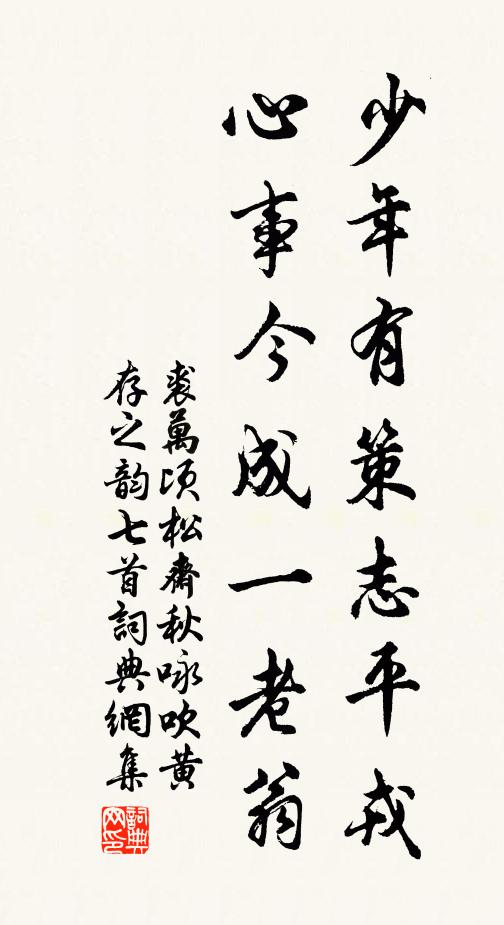 少年有策志平戎
心事今成一老翁
裘萬頃松齋秋咏吹黄
存之韵七首詞典網集
詞典网印